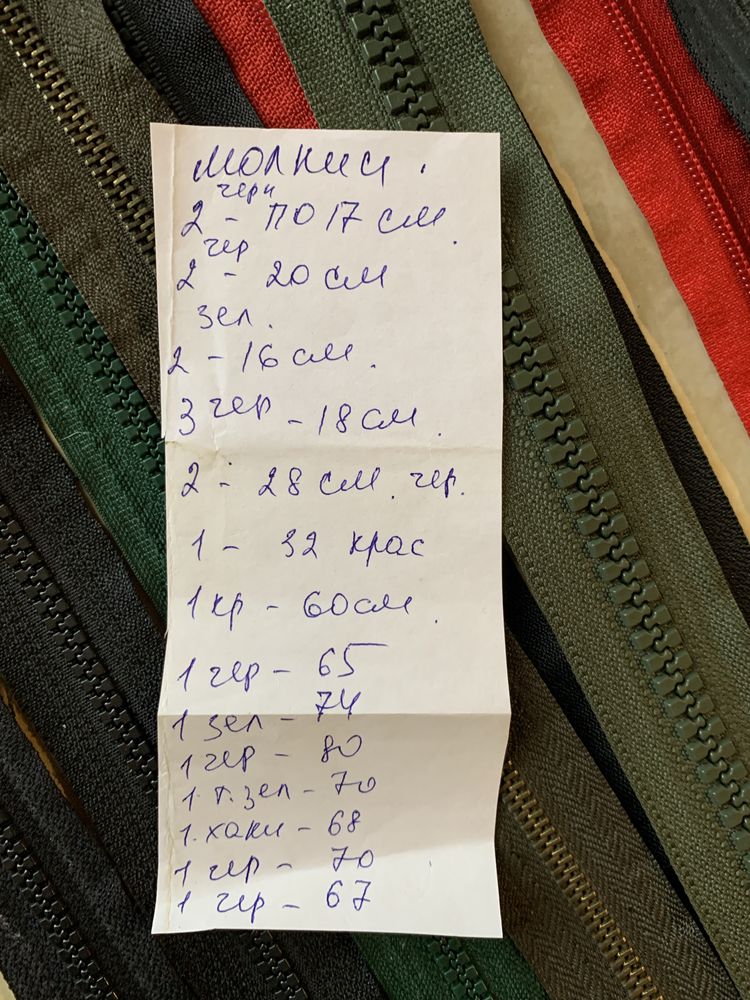 МОЛНИИ.
черн
2 - ПО 17 см.
чер
2 - 20 см
зел.
2 - 16 см.
3 чер - 18 см.
2 - 28 см. чер.
1 - 32 крас
1 кр - 60 см.
1 чер - 65
1 зел - 74
1 чер - 80
1 т. зел - 70
1. хаки - 68
1 чер - 70
1 чер - 67